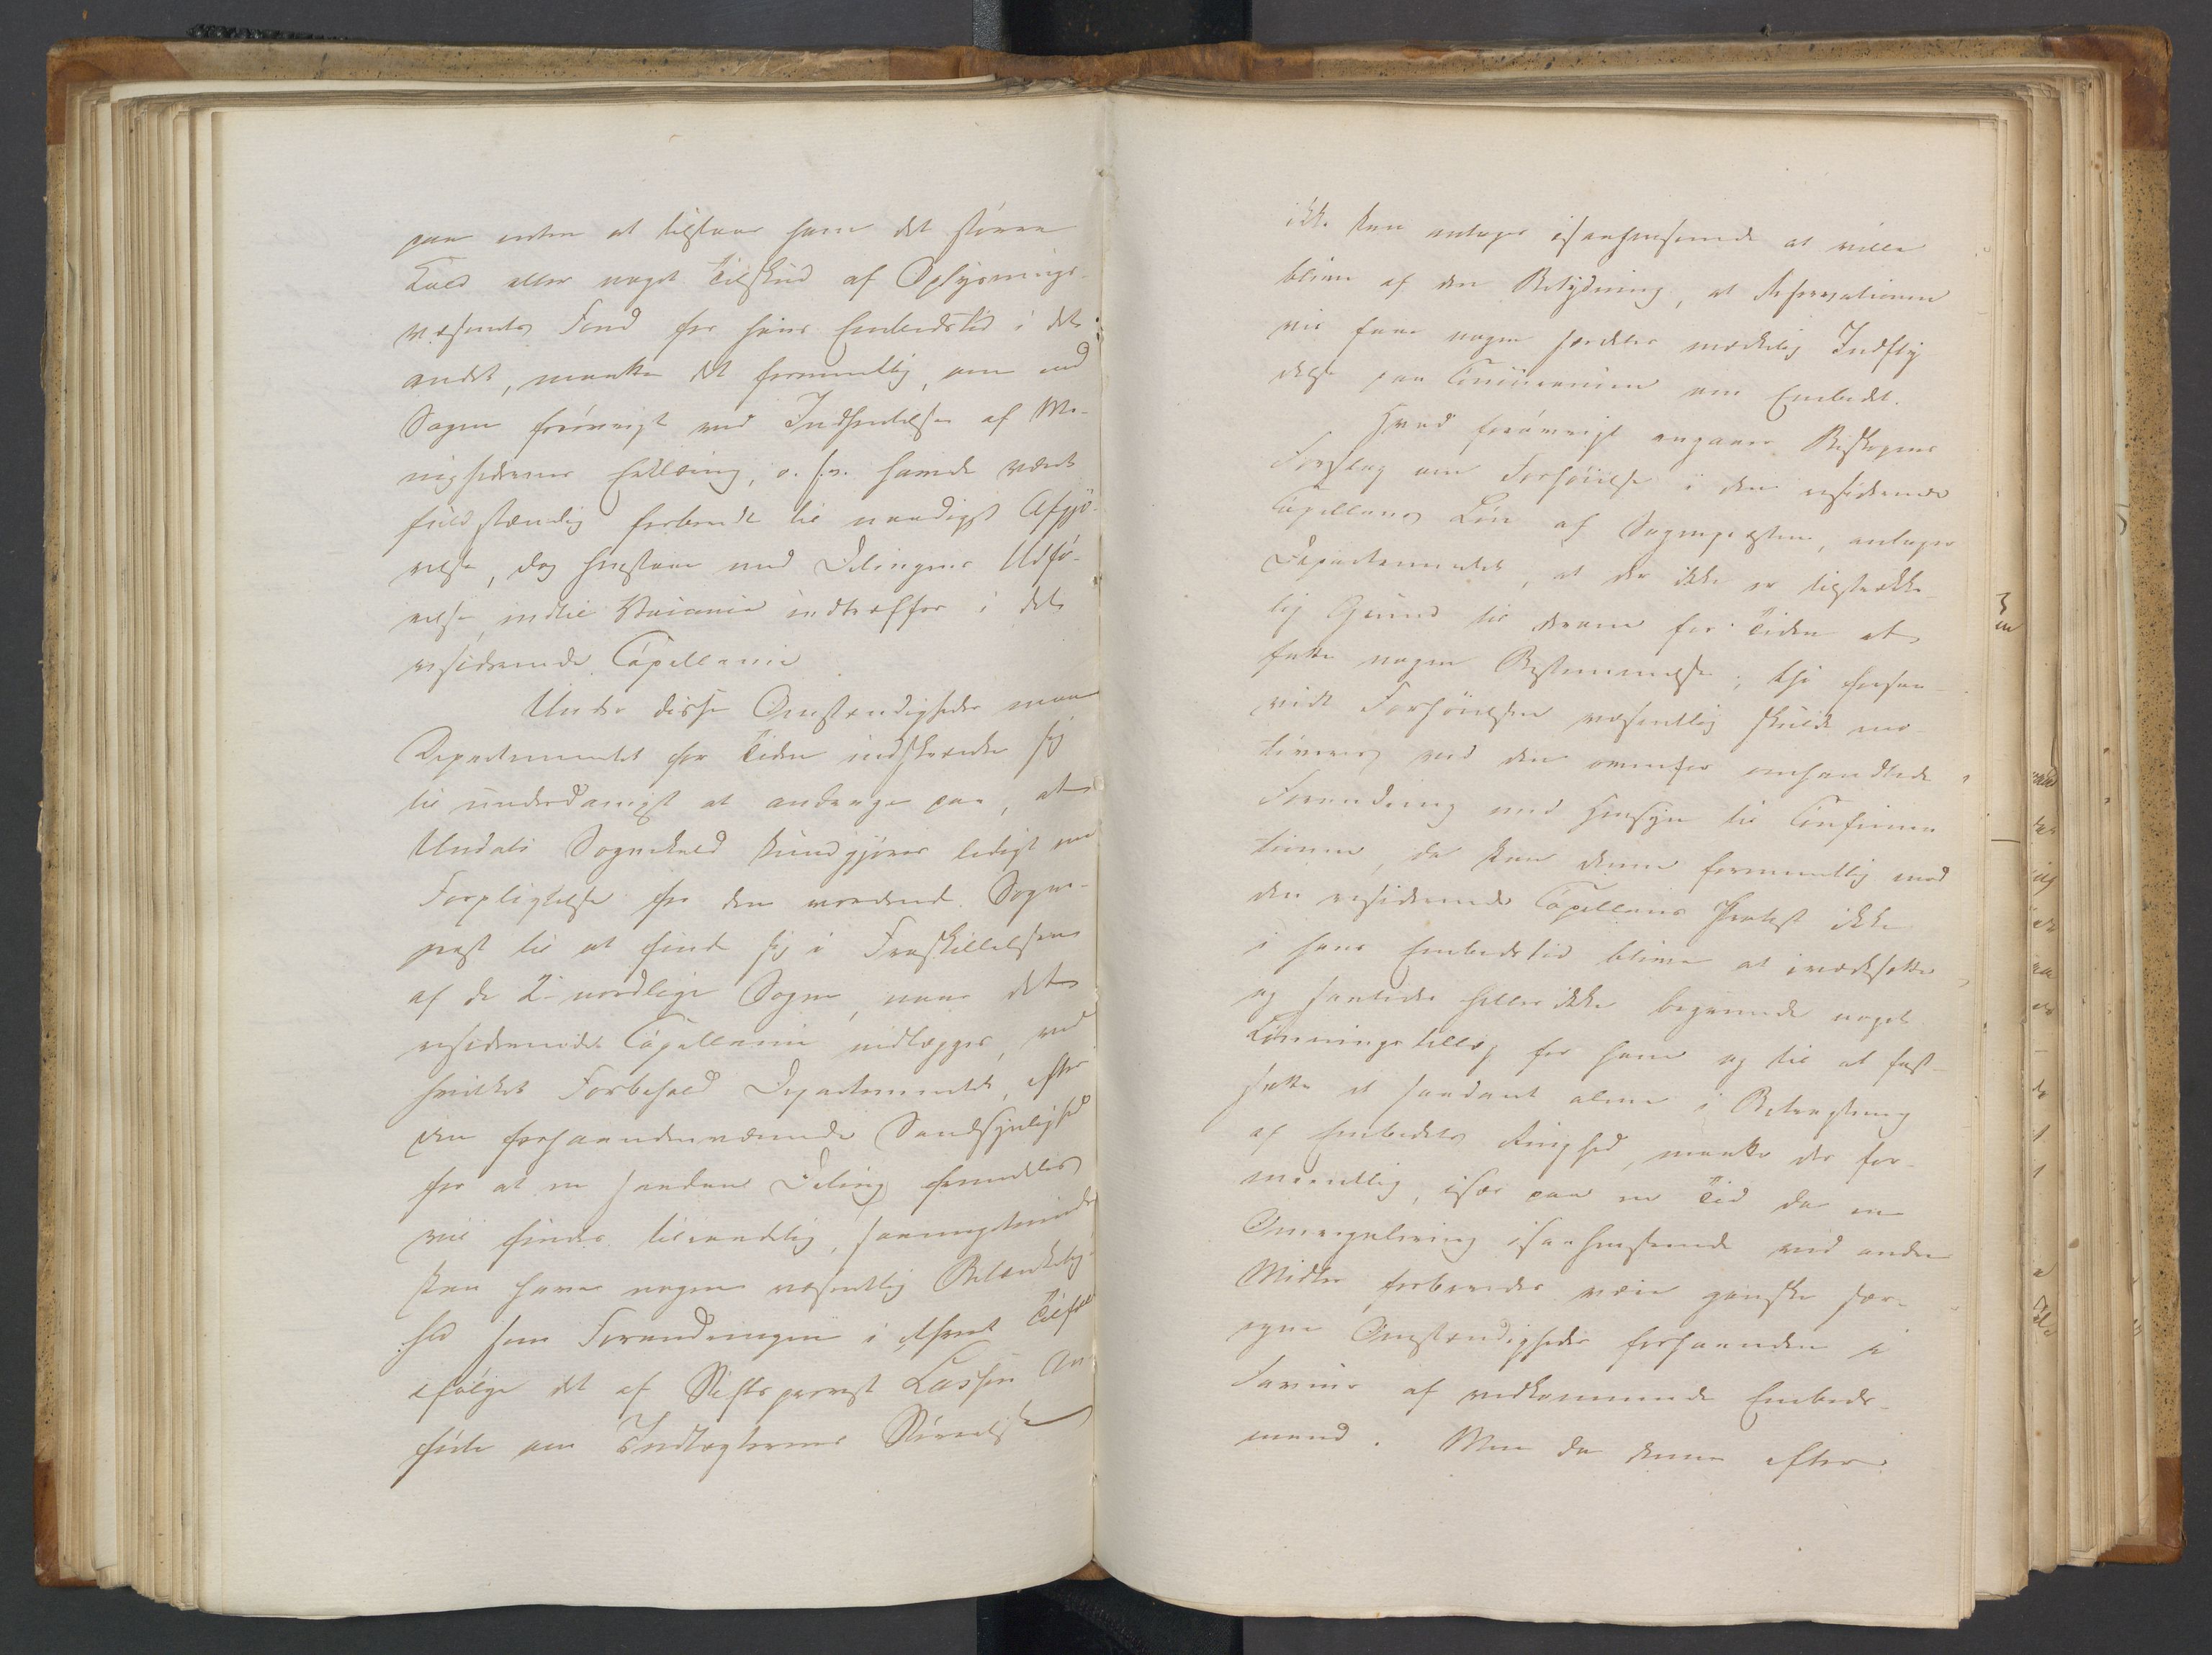 paa enten at tilstaae ham det større
Kald eller noget Tilskud af Oplysnings-
væsenets Fond for hans Embedstid i det
andet, maatte det formeentlig, om end
Sagen forøvrigt ved Indhentelse af Me-
nighedernes Erklæring, o. s. v. havde været
fuldstændig forberedt til naadigst Afgjø-
relse, dog henstaae med Delingens Udfø-
relse, indtil Vacance indtræffer i det
residerende Capellanie
Under disse Omstændigheder maa
Departementet for Tiden indskrænke sig
til underdanigst at andrage paa, at
Undals Sognekald kundgjøres ledigt med
Forpligtelse for den vordende Sogne-
prest til at finde sig i Fraskillelsen
af de 2 nordlige Sogne, naar det
residerende Capellanie nedlægges, ved
hvilket Forbehold Departementet, efter
den forhaandenværende Sandsynlighed
for at en saadan Deling fremdeles
vil findes tilraadelig, saameget mindre
kan have nogen væsentlig Betænkelig-
hed som Forandringen i ethvert Tilfælde
ifølge det af Stiftsprovst Lassen An-
førte om Indtægternes Størrelse
ikke kan antages isaahenseende at ville
blive af den Betydning, at Reservationen
vil faae nogen særdeles mærkelig Indfly-
delse paa Concurrencen om Embedet.
Hvad forøvrigt angaaer Biskopens
Forslag om Forhøielse i den residerende
Capellans Løn af Sognepresten, antager
Departementet, at der ikke er tilstrække-
lig Grund til derom for Tiden at
fatte nogen Bestemmelse; thi forsaa-
vidt Forhøielsen væsentlig skulde mo-
tiveres ved den ovenfor omhandlede
Forandring med Hensyn til Confirma-
tionen, da kan denne formeentlig mod
den residerende Capellans Protest ikke
i hans Embedstid blive at iværksætte
og saaledes heller ikke begrunde noget
Lønningstillæg for ham og til at fast-
sætte et saadant alene i Betragtning
af Embedets Ringhed, maatte der for-
meentlig, især paa en Tid da en
Omregulering isaahenseende ved andre
Midler forberedes være ganske sær-
egne Omstændigheder forhaanden i
Faveur af vedkommende Embeds-
mand. Men da denne efter